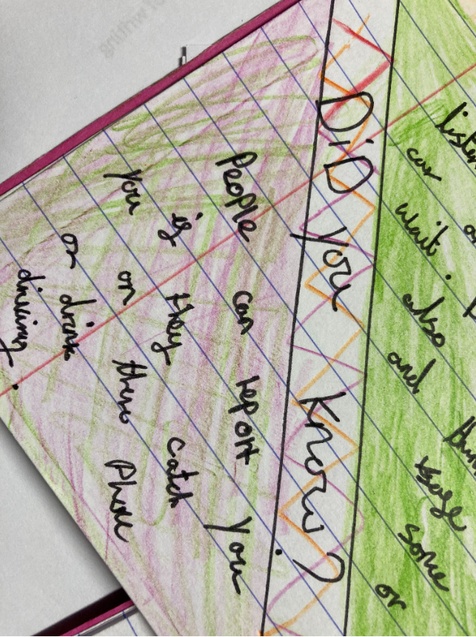 listen
can wait.
also and
usage
some
or
DiD you know?
People can report you
is they catch
you on there Phone
or drink
driving.